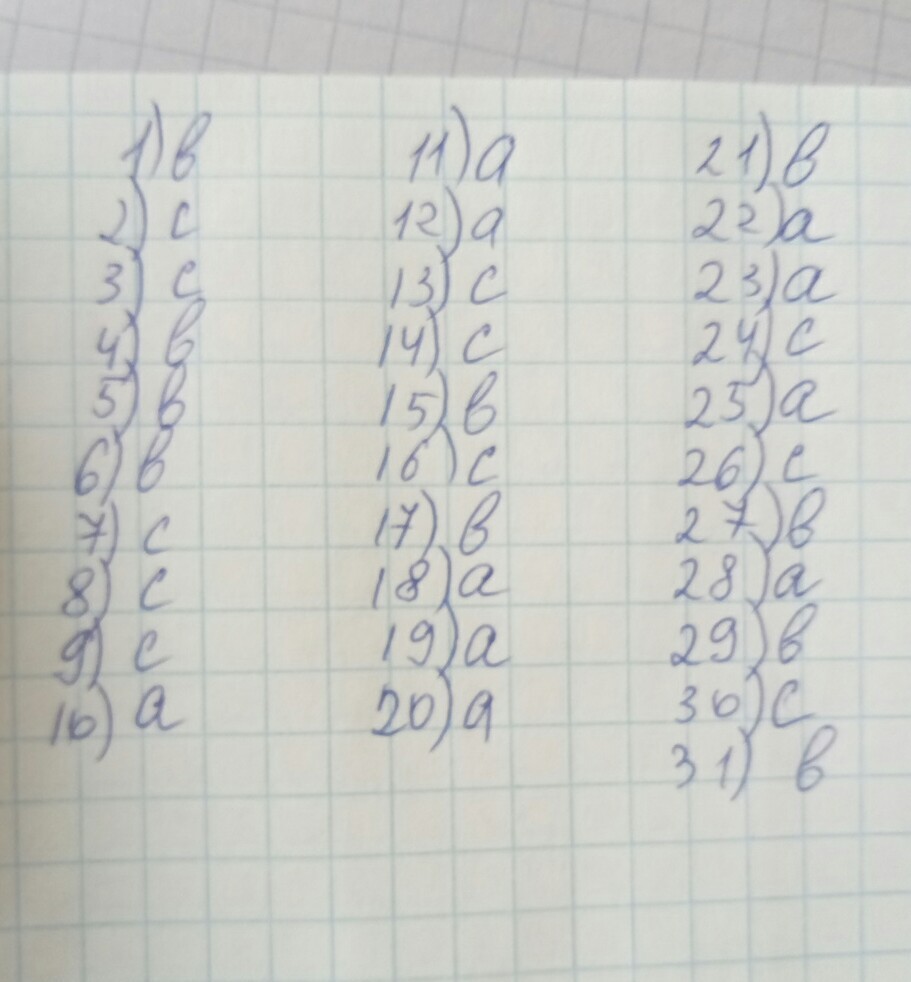 1) в
2) с
3) с
4) в
5) в
6) в
7) с
8) с
9) с
10) а
11) а
12) а
13) с
14) с
15) в
16) с
17) в
18) а
19) а
20) а
21) в
22) а
23) а
24) с
25) а
26) с
27) в
28) а
29) в
30) с
31) в